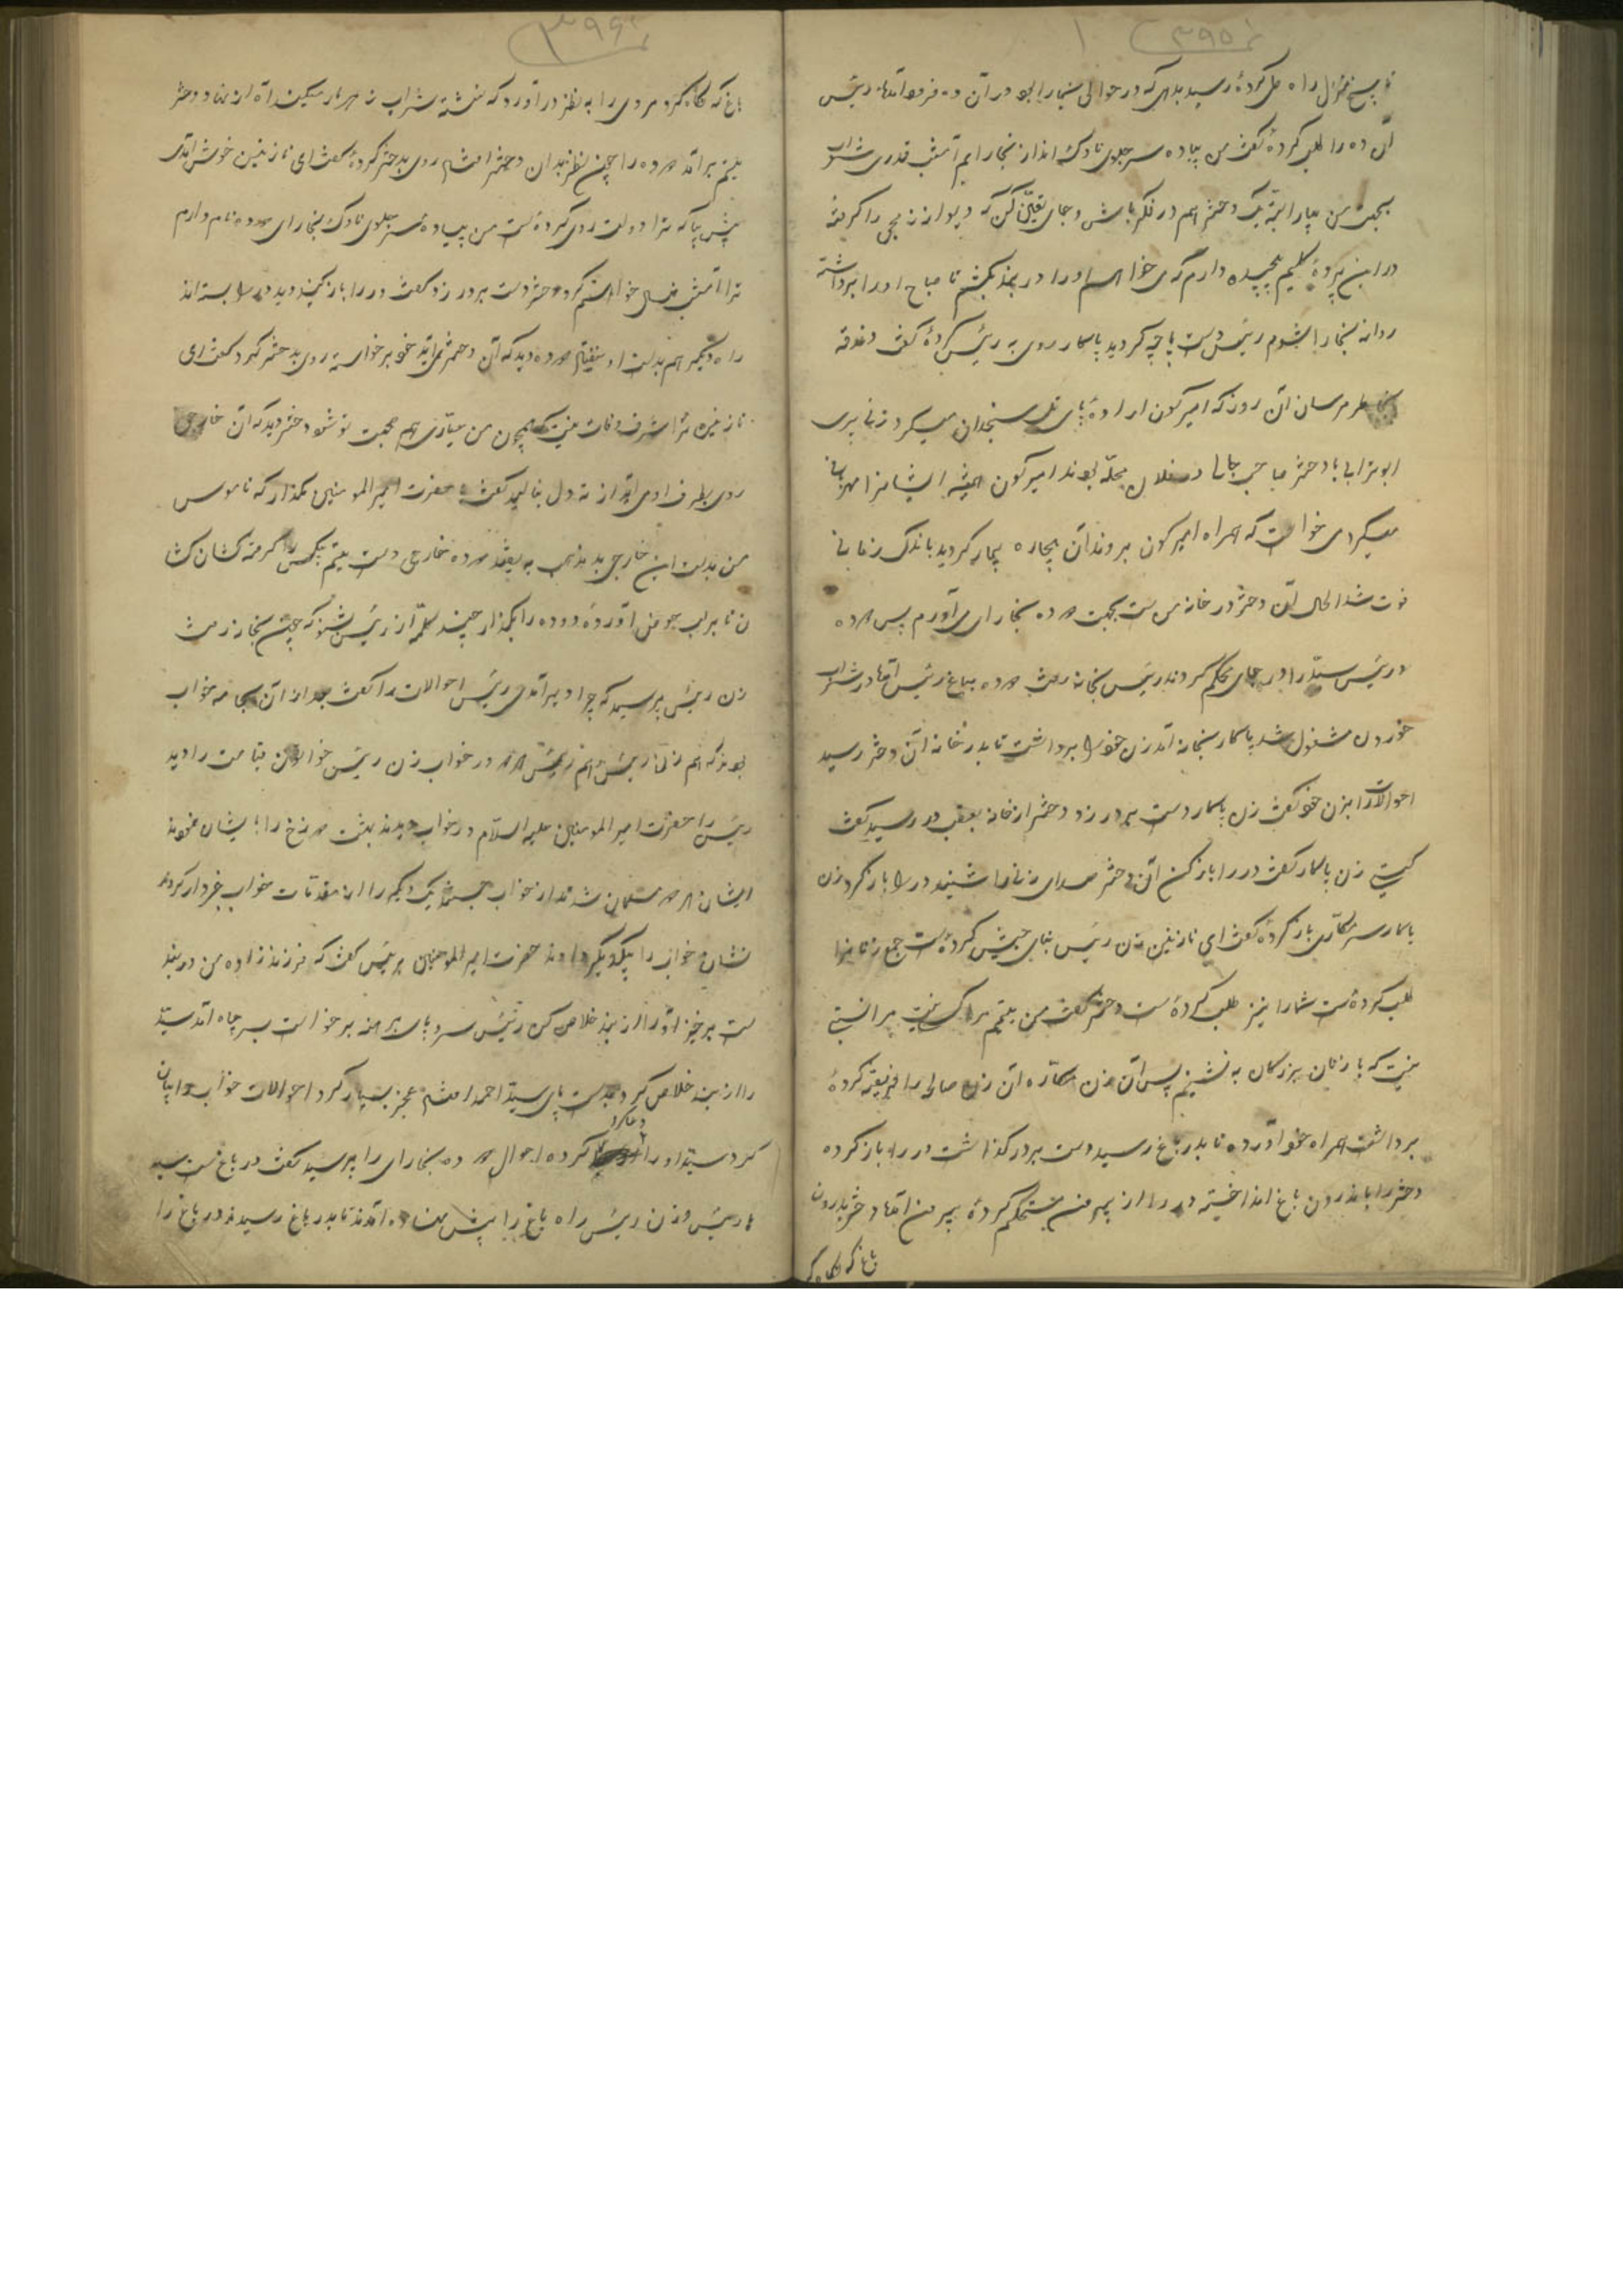 ۳۹۵
تا پنج منزل راه طی کردهٔ رسید بدهی که در حوالی بنجارا بود در آن ده فرود آمدها رئیس
آن ده را طلب کردهٔ گفت من پیاده سر جلوی ناوک انداز بنجارایم امشب قدری شراب
بجهت من بیار البته یک دختر هم در فکر باش و جای تعین کن که دیوار
در این پردهٔ گلیم پیچیده دارم که می خواهم او را در بند بکشم تا صباح او را برداشته
روانه بنجارا شوم رئیس دست پاچه گردید پاسار روی به رئیس کردهٔ گفت دغدقه
بخاطر مرسان آن روز که امیر کون ارادهٔ پای تل سنجدان میکرد زنی پیری
ابوترابی با دختر صاحب جمالی در فلان محله بودند امیر کون همیشه ایشانرا مهربانی
میکرد می خواست که همراه امیر کون بروند آن بیچاره بیمار گردید باندک زمانی
فوت شد الحال آن دختر در خانه من ست بجهت مرده بنجارای می آورم پس مرده
و رئیس سید را در جای محکم کردند رئیس بخانه رفت مرده بباغ رئیس آمد در شراب
خوردن مشغول شد پاسار بخانه آمد زن خود را برداشت تا بدر خانه آن دختر رسید
احوالات را بزن خود گفت زن پاسار دست بر در زد دختر از خانه بعقب در رسید گفت
کیستی زن پاسار گفت در را باز کن آن دختر صدای زنانرا شنید در را باز کرد زن
پاسار سر مکاری باز کردهٔ گفت ای نازنین زن رئیس بنای جشن کردهٔ ست جمع زنانرا
طلب کردهٔ ست شما را نیز طلب کردهٔ ست دختر گفت من یتیم مرا کسی نیست مرا نسبتی
نیست که با زنان بزرگان به نشینم پس آن زن مکاره آن زن صالی را فریفته کردهٔ
برداشت همراه خود آورده تا بدر باغ رسید دست بر در گذاشت در را باز کرده
دختر را باندرون باغ انداخته در را از بیرون مستحکم کردهٔ بیرون آمد دختر باندرون
باغ که نگاه کر
۳۹۶
باغ که نگاه کرد مردی را به نظر در آورد که نشسته شراب زهر مار میکند آه از نهاد دختر
یتیم بر آمد مرده را چون نظر بدان دختر افتاد روی بدختر کردهٔ گفت ای نازنین خوش آمدی
پیش بیا که ترا دولت روی کردهٔ ست من پیادهٔ سر جلوی ناوک بنجارای مرده نام دارم
ترا امشب خواهم کرد دختر دست بر در زد گفت در را باز کنید دید در را بسته اند
راه دیگر هم بدست او نیفتاد مرده دید که آن دختر نمی آید خود برخواسته روی بدختر کرد گفت ای
نازنین ترا شرف و ذات نیست که همچون من عیاری هم صحبت تو شود دختر دید که آن خارجی
روی بطرف او می آید از ته دل بنالید گفت یا حضرت امیر المومنین مگذار که ناموس
من بدست این خارجی بد مذهب به بیفتد مرده خارجی دست یتیم بیکس را گرفته کشان کشا
ن تا بر لب حوض آوردهٔ ده ده را بگذار چند کلمه از رئیس بشنو که چون بخانه رفت
زن رئیس پرسید که چرا دیر آمدی رئیس احوالات را گفت بعد از آن بجامه خواب
بودند که هم زن رئیس هم رئیس در خواب زن رئیس خواب قیامت را دید
رئیس را حضرت امیر المومنین علیه السلام در خواب دیدند بهشت و دوزخ را بایشان نمودند
ایشان هر دو مسلمان شدند از خواب جستند یک دیگر را از مقدمات خواب خبردار کردند
نشان خواب را بیکدیگر دادند حضرت امیر المومنین برئیس گفت که فرزند زاده من در بند
ست برخیز او را از بند خلاص کن رئیس سر و پای برهنه برخواست بسر چاه آمد سید
را از بند خلاص کرد بدست پای سید احمد افتاد عجز بسیار کرد احوالات خواب را بیان
کرد سید او را دعا کرد کرده احوال مرده بنجارای را پرسید گفت در باغ ست سید
با رئیس و زن رئیس راه باغ را پیش نهاده آمدند تا بدر باغ رسیدند در باغ را